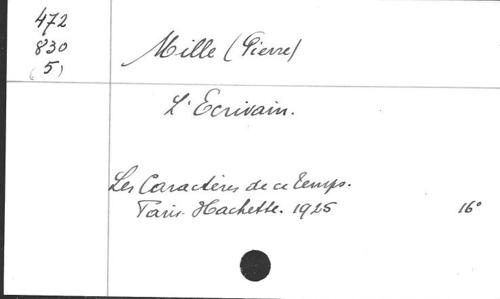 472
830
(5)
Mille (Pierre)
L'Ecrivain.
Les Caractères de ce temps.
Paris. Hachette. 1925 16°